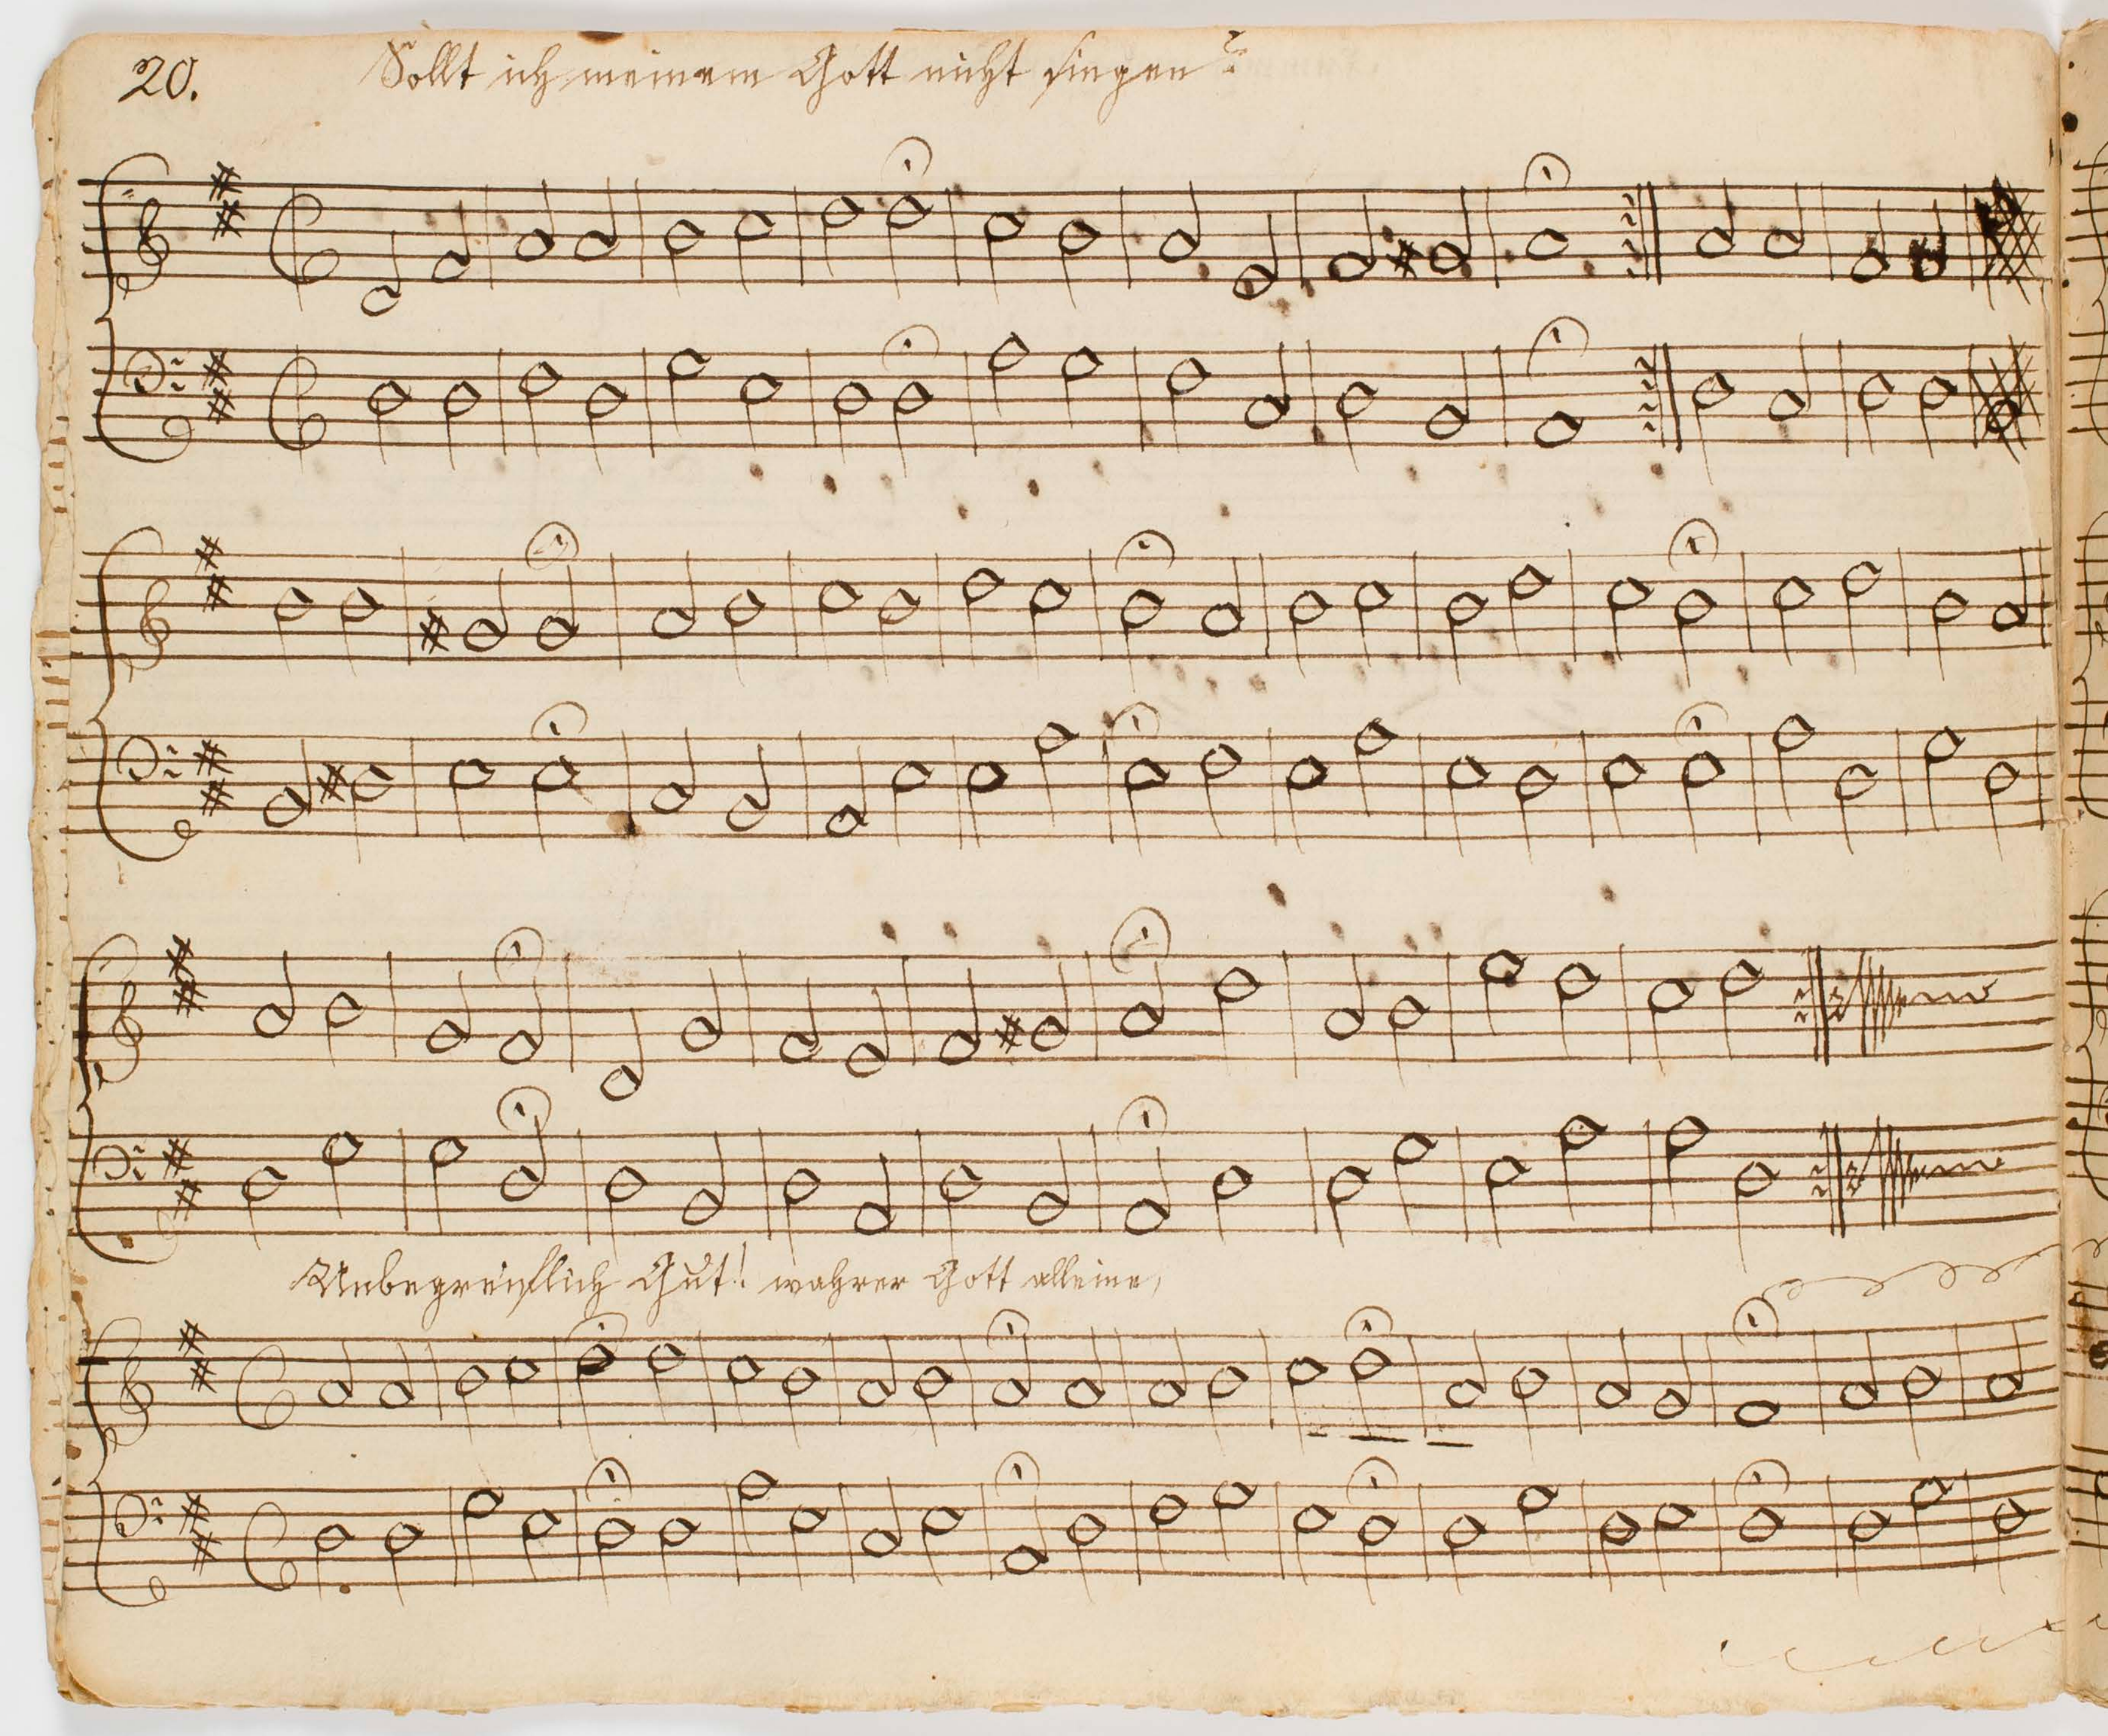 20.
Sollt ich meinem Gott nicht singen?
Unbegreiflich Gut! wahrer Gott alleine,